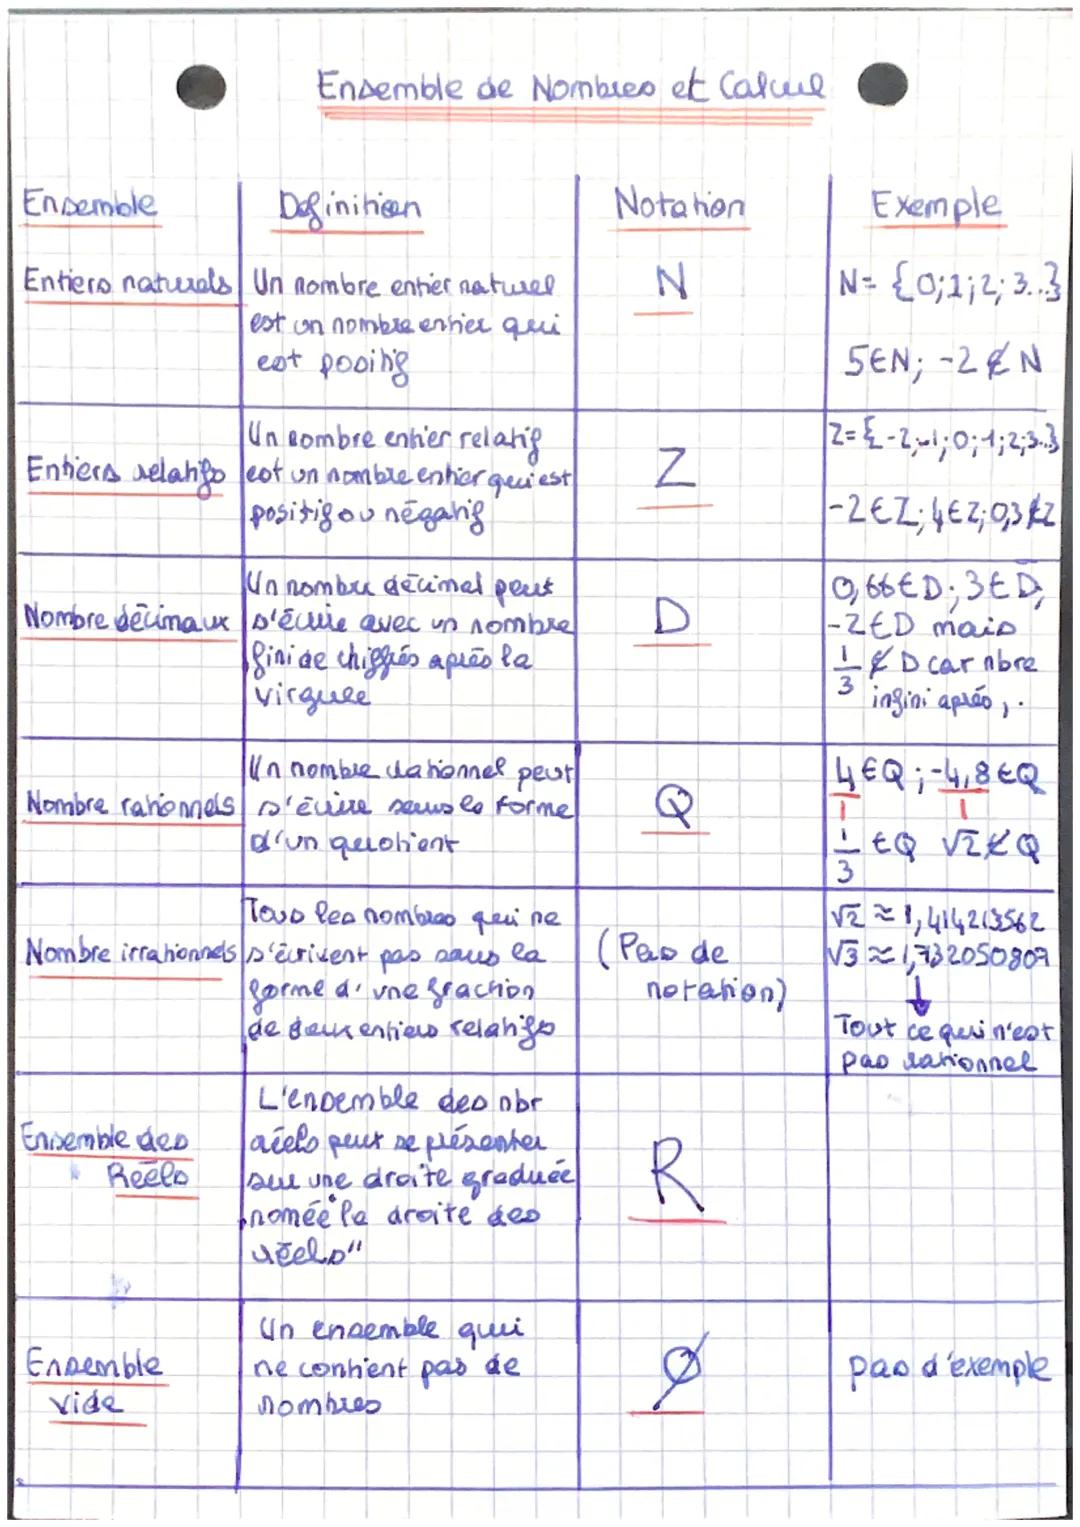 Ensemble de Nombres et Calcul
Ensemble
Definition
Notation
Exemple
Entiers naturels
Un nombre entier naturel
est un nombre entier qui
est positif
N
N= {0;1;2;3...}
5∈N; -2 ∉ N
Entiers relatifs
Un nombre entier relatif
est un nombre entier qui est
positif ou négatif
Z
Z={-2;-1;0;1;2;3..}
-2∈Z; 4∈Z; 0,3∉Z
Nombre décimaux
Un nombre décimal peut
s'écrire avec un nombre
fini de chiffres après la
virgule
D
0,66∈D; 3∈D,
-2∈D mais
1/3 ∉ D car nbre
infini après , .
Nombre rationnels
Un nombre rationnel peut
s'écrire sous la forme
d'un quotient
Q
4/1 ∈Q ; -4,8/1 ∈Q
1/3 ∈Q √2 ∉ Q
Nombre irrationnels
Tous les nombres qui ne
s'écrivent pas sous la
forme d'une fraction
de deux entiers relatifs
(Pas de
notation)
√2 ≈ 1,414213562
√3 ≈ 1,732050807
↓
Tout ce qui n'est
pas rationnel
Ensemble des
Réels
L'ensemble des nbr
réels peut se présenter
sur une droite graduée
nomée "la droite des
réels"
R
Ensemble
vide
Un ensemble qui
ne contient pas de
nombres
∅
pas d'exemple